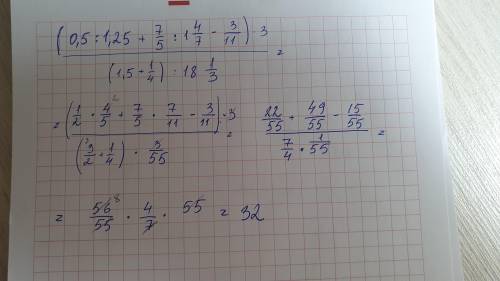 (0,5 : 1,25 + 7/5 : 1 4/7 − 3/11) · 3
(1,5 + 1/4) : 18 1/3 =
= (1/2 · 4/5 + 7/5 · 7/11 − 3/11) · 3 / (3/2 + 1/4) · 3/55 = 22/55 + 49/55 − 15/55 / 7/4 · 1/55 =
= 56/55 · 4/7 · 55 = 32